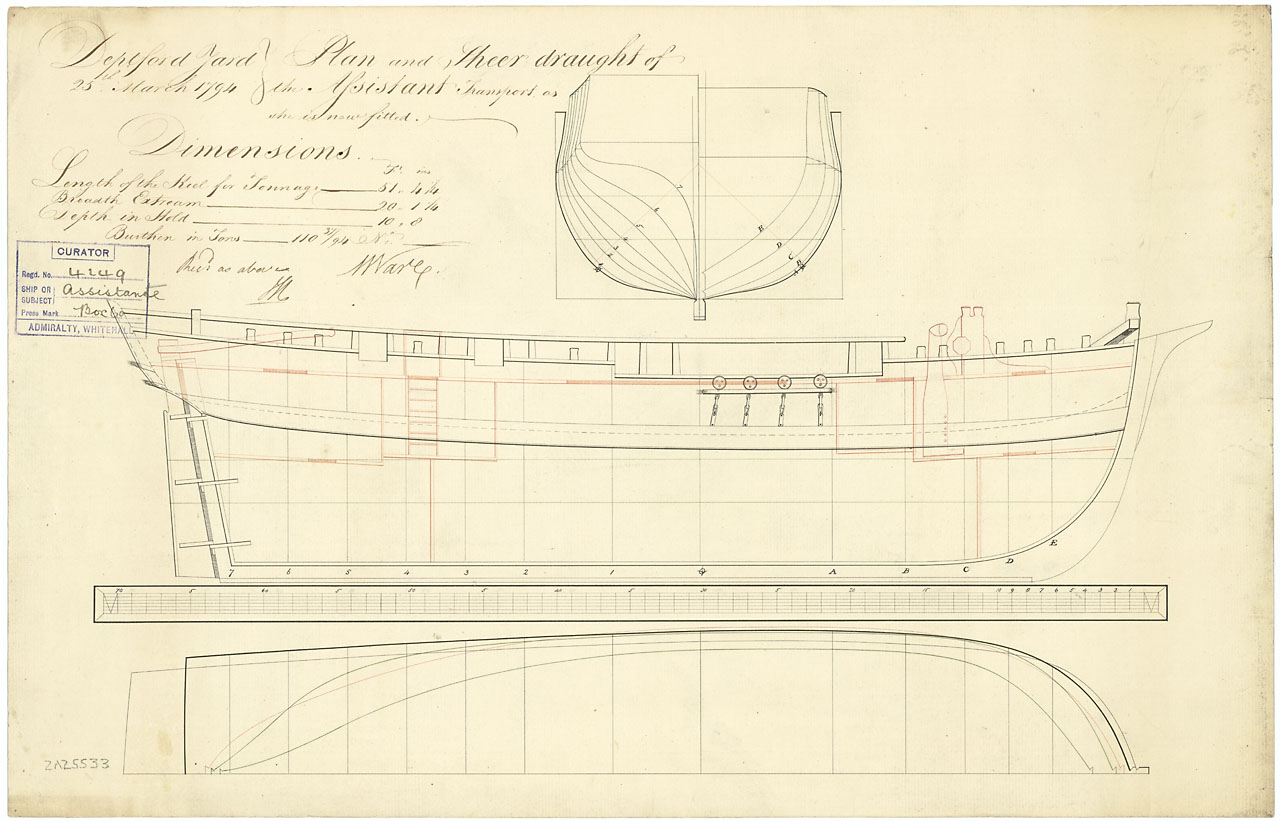 Deptford Yard } Plan and Sheer draught of
25th March 1794 } the Assistant Transport, as
she is now fitted.
Dimensions.
Ft. ins
Length of the Keel for Tonnage 51. 4 1/4
Breadth Extream 20. 1 1/4
Depth in Hold 10. 8
Burthen in Tons 110 31/94 No.
Rec'd as above
M Ware.
CURATOR
Regd. No. 4249
SHIP OR SUBJECT Assistante
Press Mark Box 60
ADMIRALTY, WHITEHALL
7 6 5 4 3 2 1 A B C D E
B D C
70 5 60 5 50 5 5 5 20 15 10 9 8 7 6 5 4 3 2 1
ZAZ5533